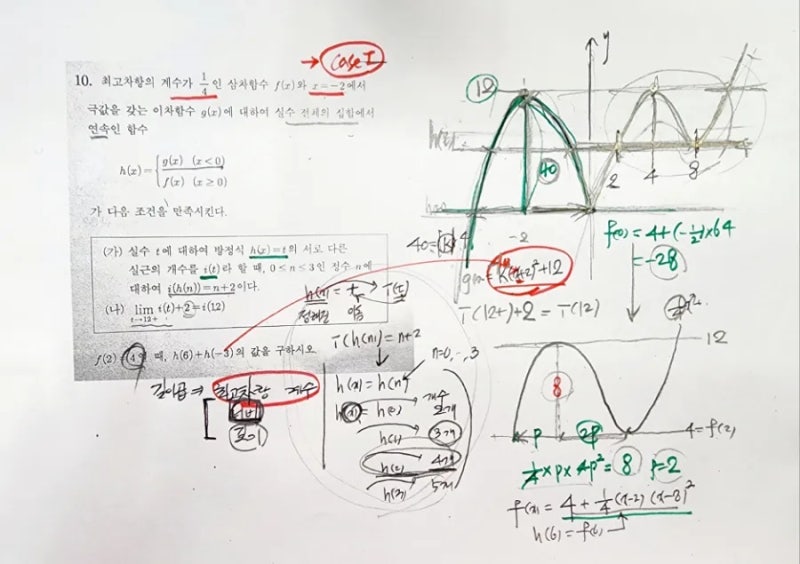 → Case I
10. 최고차항의 계수가 1/4인 삼차함수 f(x)와 x=-2에서
극값을 갖는 이차함수 g(x)에 대하여 실수 전체의 집합에서
연속인 함수
h(x)={g(x) (x<0)
f(x) (x≥0)
가 다음 조건을 만족시킨다.
(가) 실수 t에 대하여 방정식 h(x)=t의 서로 다른
실근의 개수를 i(t)라 할 때, 0≤n≤3인 정수 n에
대하여 i(h(n))=n+2이다.
(나) lim i(t)+2=i(12)
t→12+
f(2)
때, h(6)+h(-3)의 값을 구하시오
h(x)=t
i(h(n))=n+2
n=0,…,3
h(x)=h(n)
h(x)=h(0)
개수
2개
h(1)
3개
h(2)
4개
h(3)
5개
최고차항 계수
12
y
40
-2
2
4
8
g(x)=K(x+2)²+12
T(12+)+2=T(12)
f(0)=4+(-1/2)×64
=-28
12
8
P
2P
4=f(2)
1/4×P×4P²=8
P=2
f(x)=4+1/4(x-2)(x-8)²
h(6)=f(6)